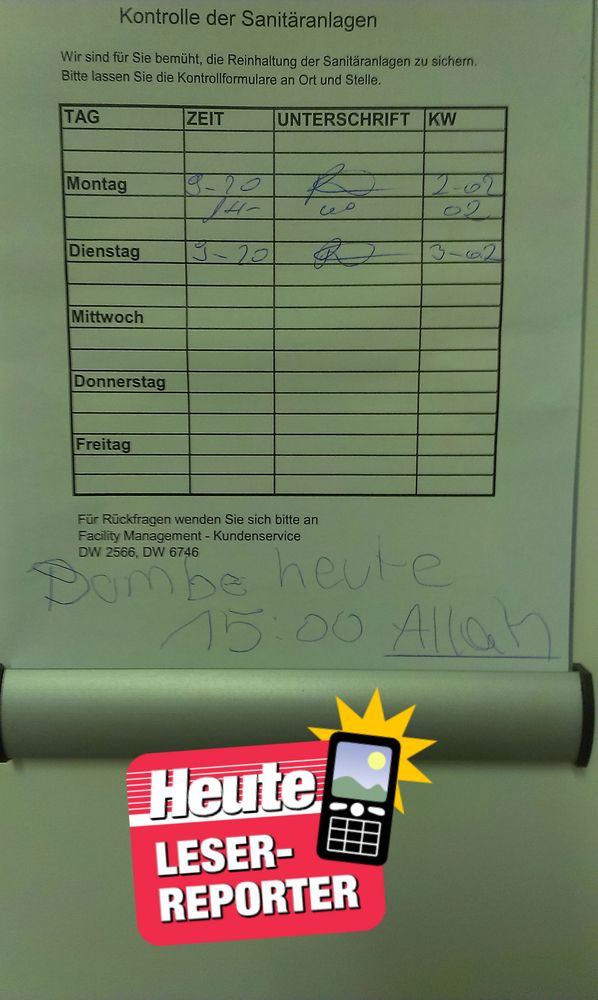 Kontrolle der Sanitäranlagen
Wir sind für Sie bemüht, die Reinhaltung der Sanitäranlagen zu sichern.
Bitte lassen Sie die Kontrollformulare an Ort und Stelle.
TAG ZEIT UNTERSCHRIFT KW
Montag 9-20 2-02
14- 02
Dienstag 9-20 3-02
Mittwoch
Donnerstag
Freitag
Für Rückfragen wenden Sie sich bitte an
Facility Management - Kundenservice
DW 2566, DW 6746
Bombe heute
15:00 Allah
Heute
LESER-
REPORTER